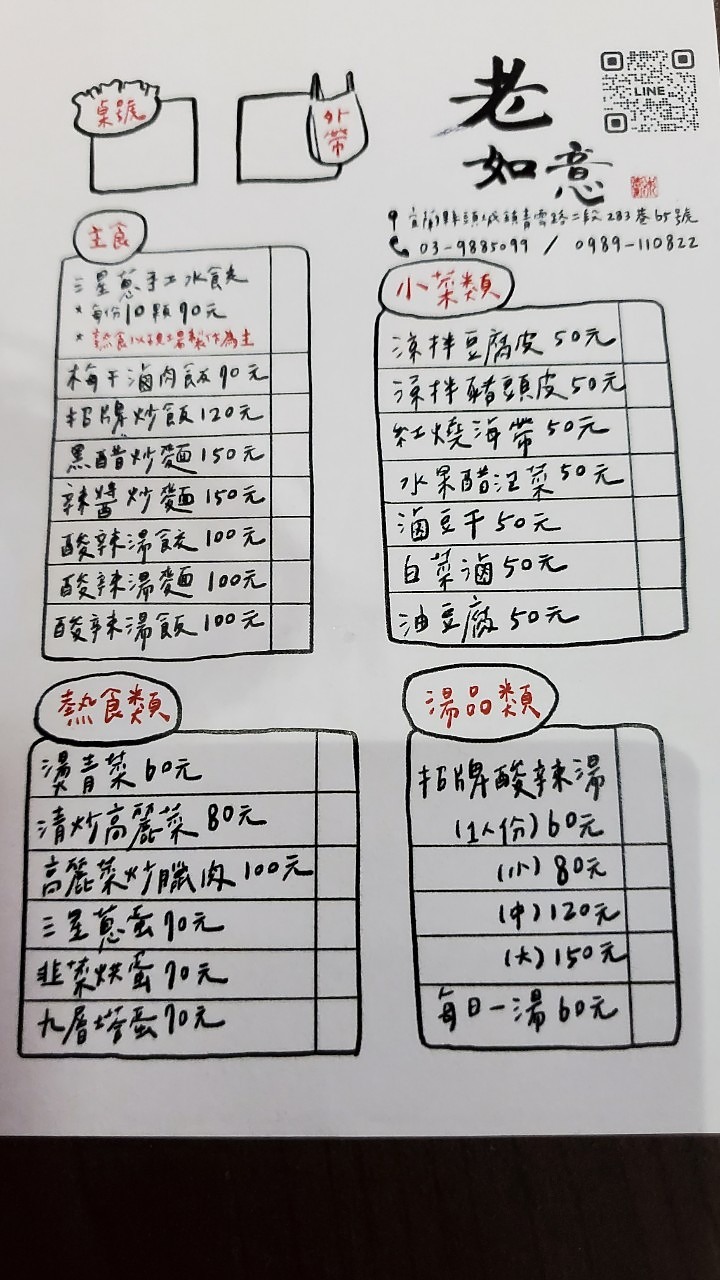 桌號
外帶
老
如意
LINE
宜蘭縣頭城鎮青雲路二段283巷65號
03-9885099 / 0989-110822
主食
三星蔥手工水餃
*每份10顆90元
*熟食以現場製作為主
梅干滷肉飯90元
招牌炒飯120元
黑醋炒麵150元
辣醬炒麵150元
酸辣湯餃100元
酸辣湯麵100元
酸辣湯飯100元
小菜類
涼拌豆腐皮50元
涼拌豬頭皮50元
紅燒海帶50元
水果醋泡菜50元
滷豆干50元
白菜滷50元
油豆腐50元
熱食類
燙青菜60元
清炒高麗菜80元
高麗菜炒臘肉100元
三星蔥蛋90元
韭菜烘蛋90元
九層塔蛋90元
湯品類
招牌酸辣湯
(1人份)60元
(小)80元
(中)120元
(大)150元
每日一湯60元